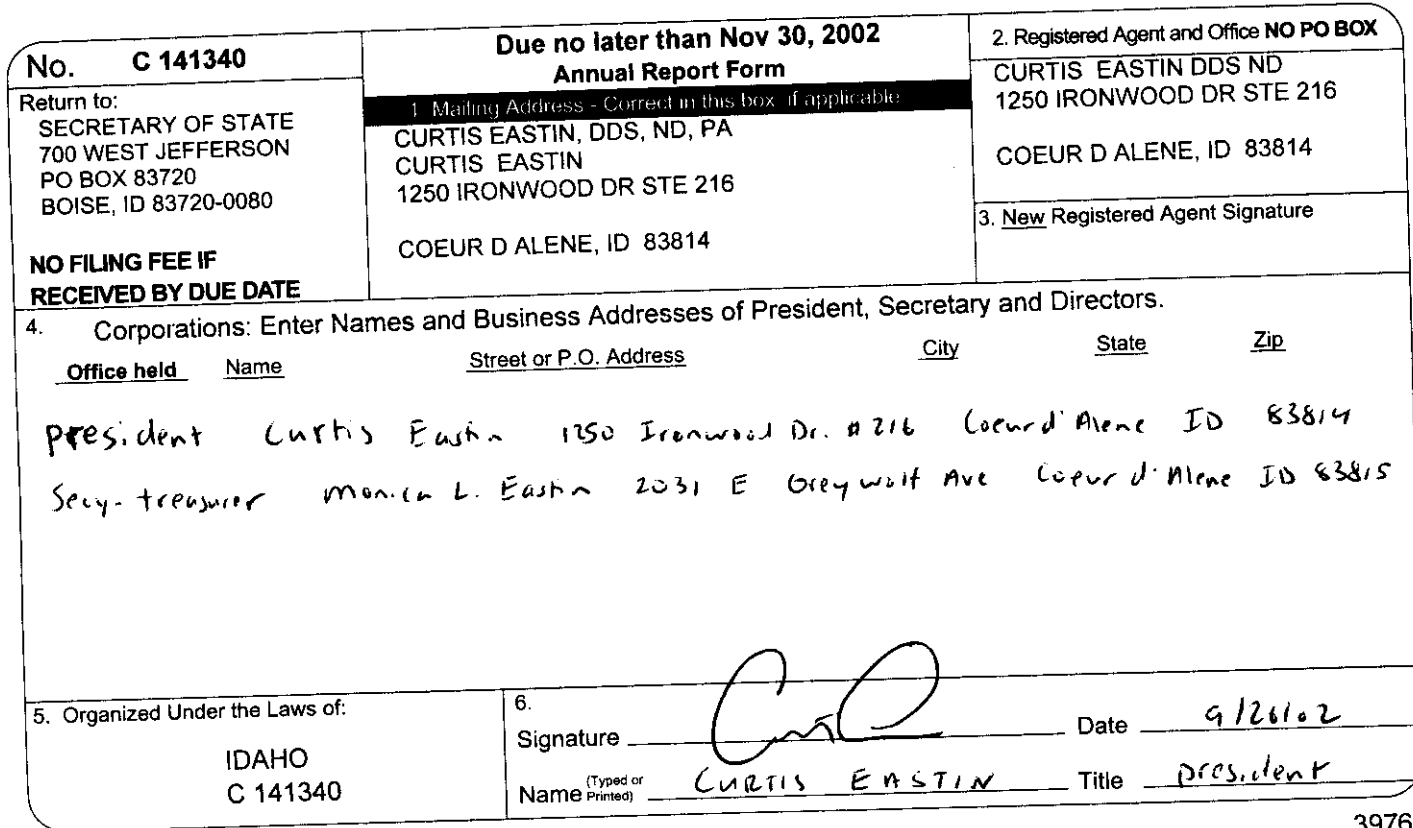 No. C 141340
Return to:
SECRETARY OF STATE
700 WEST JEFFERSON
PO BOX 83720
BOISE, ID 83720-0080
NO FILING FEE IF
RECEIVED BY DUE DATE
Due no later than Nov 30, 2002
Annual Report Form
1. Mailing Address - Correct in this box if applicable
CURTIS EASTIN, DDS, ND, PA
CURTIS EASTIN
1250 IRONWOOD DR STE 216
COEUR D ALENE, ID 83814
2. Registered Agent and Office NO PO BOX
CURTIS EASTIN DDS ND
1250 IRONWOOD DR STE 216
COEUR D ALENE, ID 83814
3. New Registered Agent Signature
4. Corporations: Enter Names and Business Addresses of President, Secretary and Directors.
Office held Name Street or P.O. Address City State Zip
President Curtis Eastin 1250 Ironwood Dr. #216 Coeur d'Alene ID 83814
Secy-treasurer Monica L. Eastin 2031 E Greywolf Ave Coeur d'Alene ID 83815
5. Organized Under the Laws of:
IDAHO
C 141340
6.
Signature Date 9/26/02
Name (Typed or Printed) CURTIS EASTIN Title president
3976